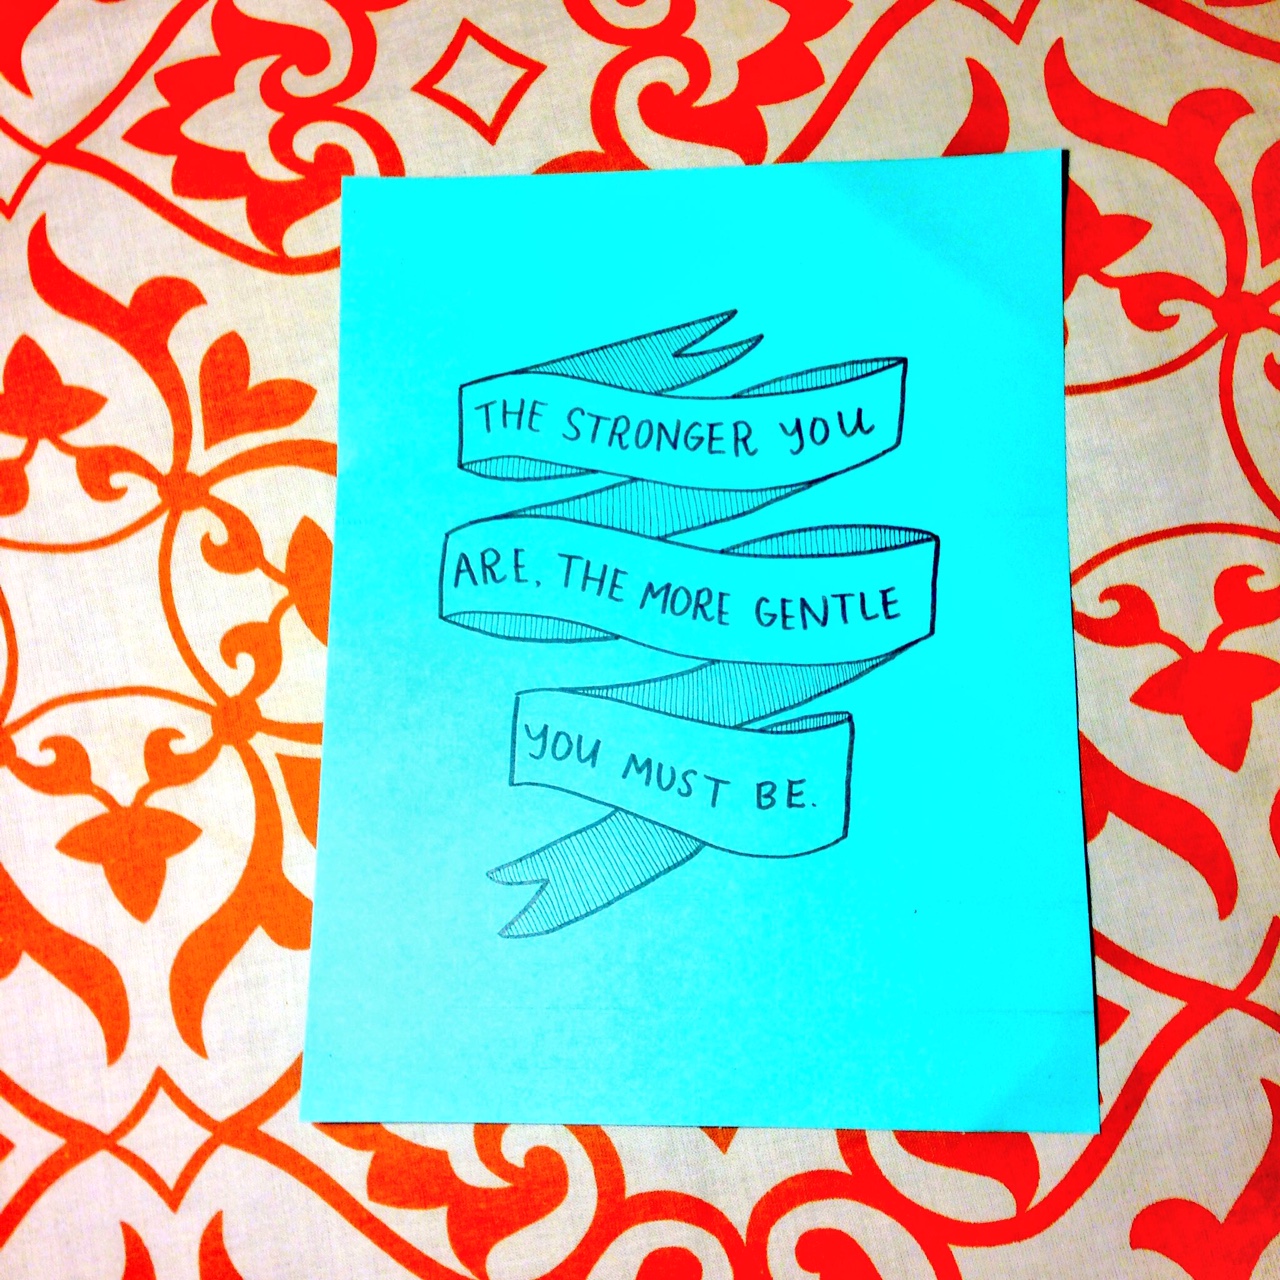 THE STRONGER YOU
ARE, THE MORE GENTLE
YOU MUST BE.